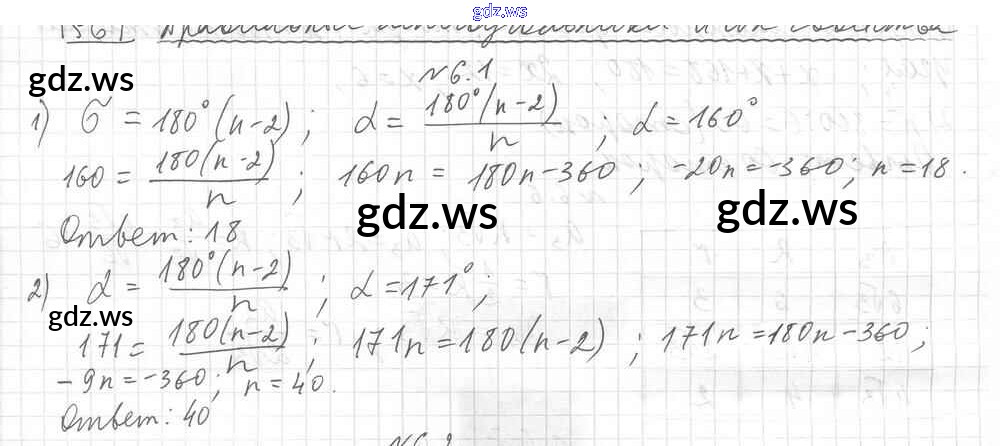 gdz.ws
§6. Правильные многоугольники и их свойства
gdz.ws
№6.1
1) σ = 180°(n-2); α = 180°(n-2)/n; α = 160°
160 = 180(n-2)/n; 160n = 180n-360; -20n = -360; n = 18.
gdz.ws
gdz.ws
Ответ: 18
2) α = 180°(n-2)/n; α = 171°;
gdz.ws
171 = 180(n-2)/n; 171n = 180(n-2); 171n = 180n-360;
-9n = -360; n = 40.
Ответ: 40